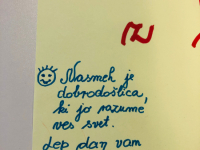 Nasmeh je
dobrodošlica,
ki jo razume
ves svet.
Lep dan vam